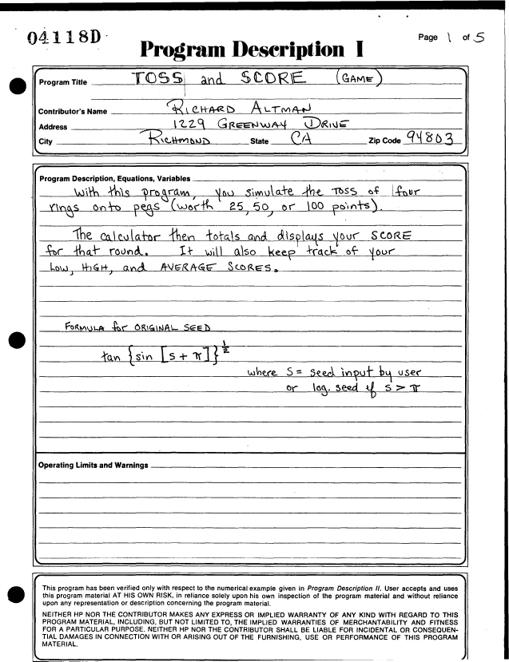 04118D
Page 1 of 5
Program Description I
Program Title TOSS and SCORE (GAME)
Contributor's Name RICHARD ALTMAN
Address 1229 GREENWAY DRIVE
City RICHMOND State CA Zip Code 94803
Program Description, Equations, Variables
With this program, you simulate the toss of four
rings onto pegs (worth 25, 50, or 100 points).
The calculator then totals and displays your SCORE
for that round. It will also keep track of your
LOW, HIGH, and AVERAGE SCORES.
FORMULA for ORIGINAL SEED
tan {sin [s + π]}^½
where S = seed input by user
or log. seed if s > π
Operating Limits and Warnings
This program has been verified only with respect to the numerical example given in Program Description II. User accepts and uses
this program material AT HIS OWN RISK, in reliance solely upon his own inspection of the program material and without reliance
upon any representation or description concerning the program material.
NEITHER HP NOR THE CONTRIBUTOR MAKES ANY EXPRESS OR IMPLIED WARRANTY OF ANY KIND WITH REGARD TO THIS
PROGRAM MATERIAL, INCLUDING, BUT NOT LIMITED TO, THE IMPLIED WARRANTIES OF MERCHANTABILITY AND FITNESS
FOR A PARTICULAR PURPOSE. NEITHER HP NOR THE CONTRIBUTOR SHALL BE LIABLE FOR INCIDENTAL OR CONSEQUEN-
TIAL DAMAGES IN CONNECTION WITH OR ARISING OUT OF THE FURNISHING, USE OR PERFORMANCE OF THIS PROGRAM
MATERIAL.